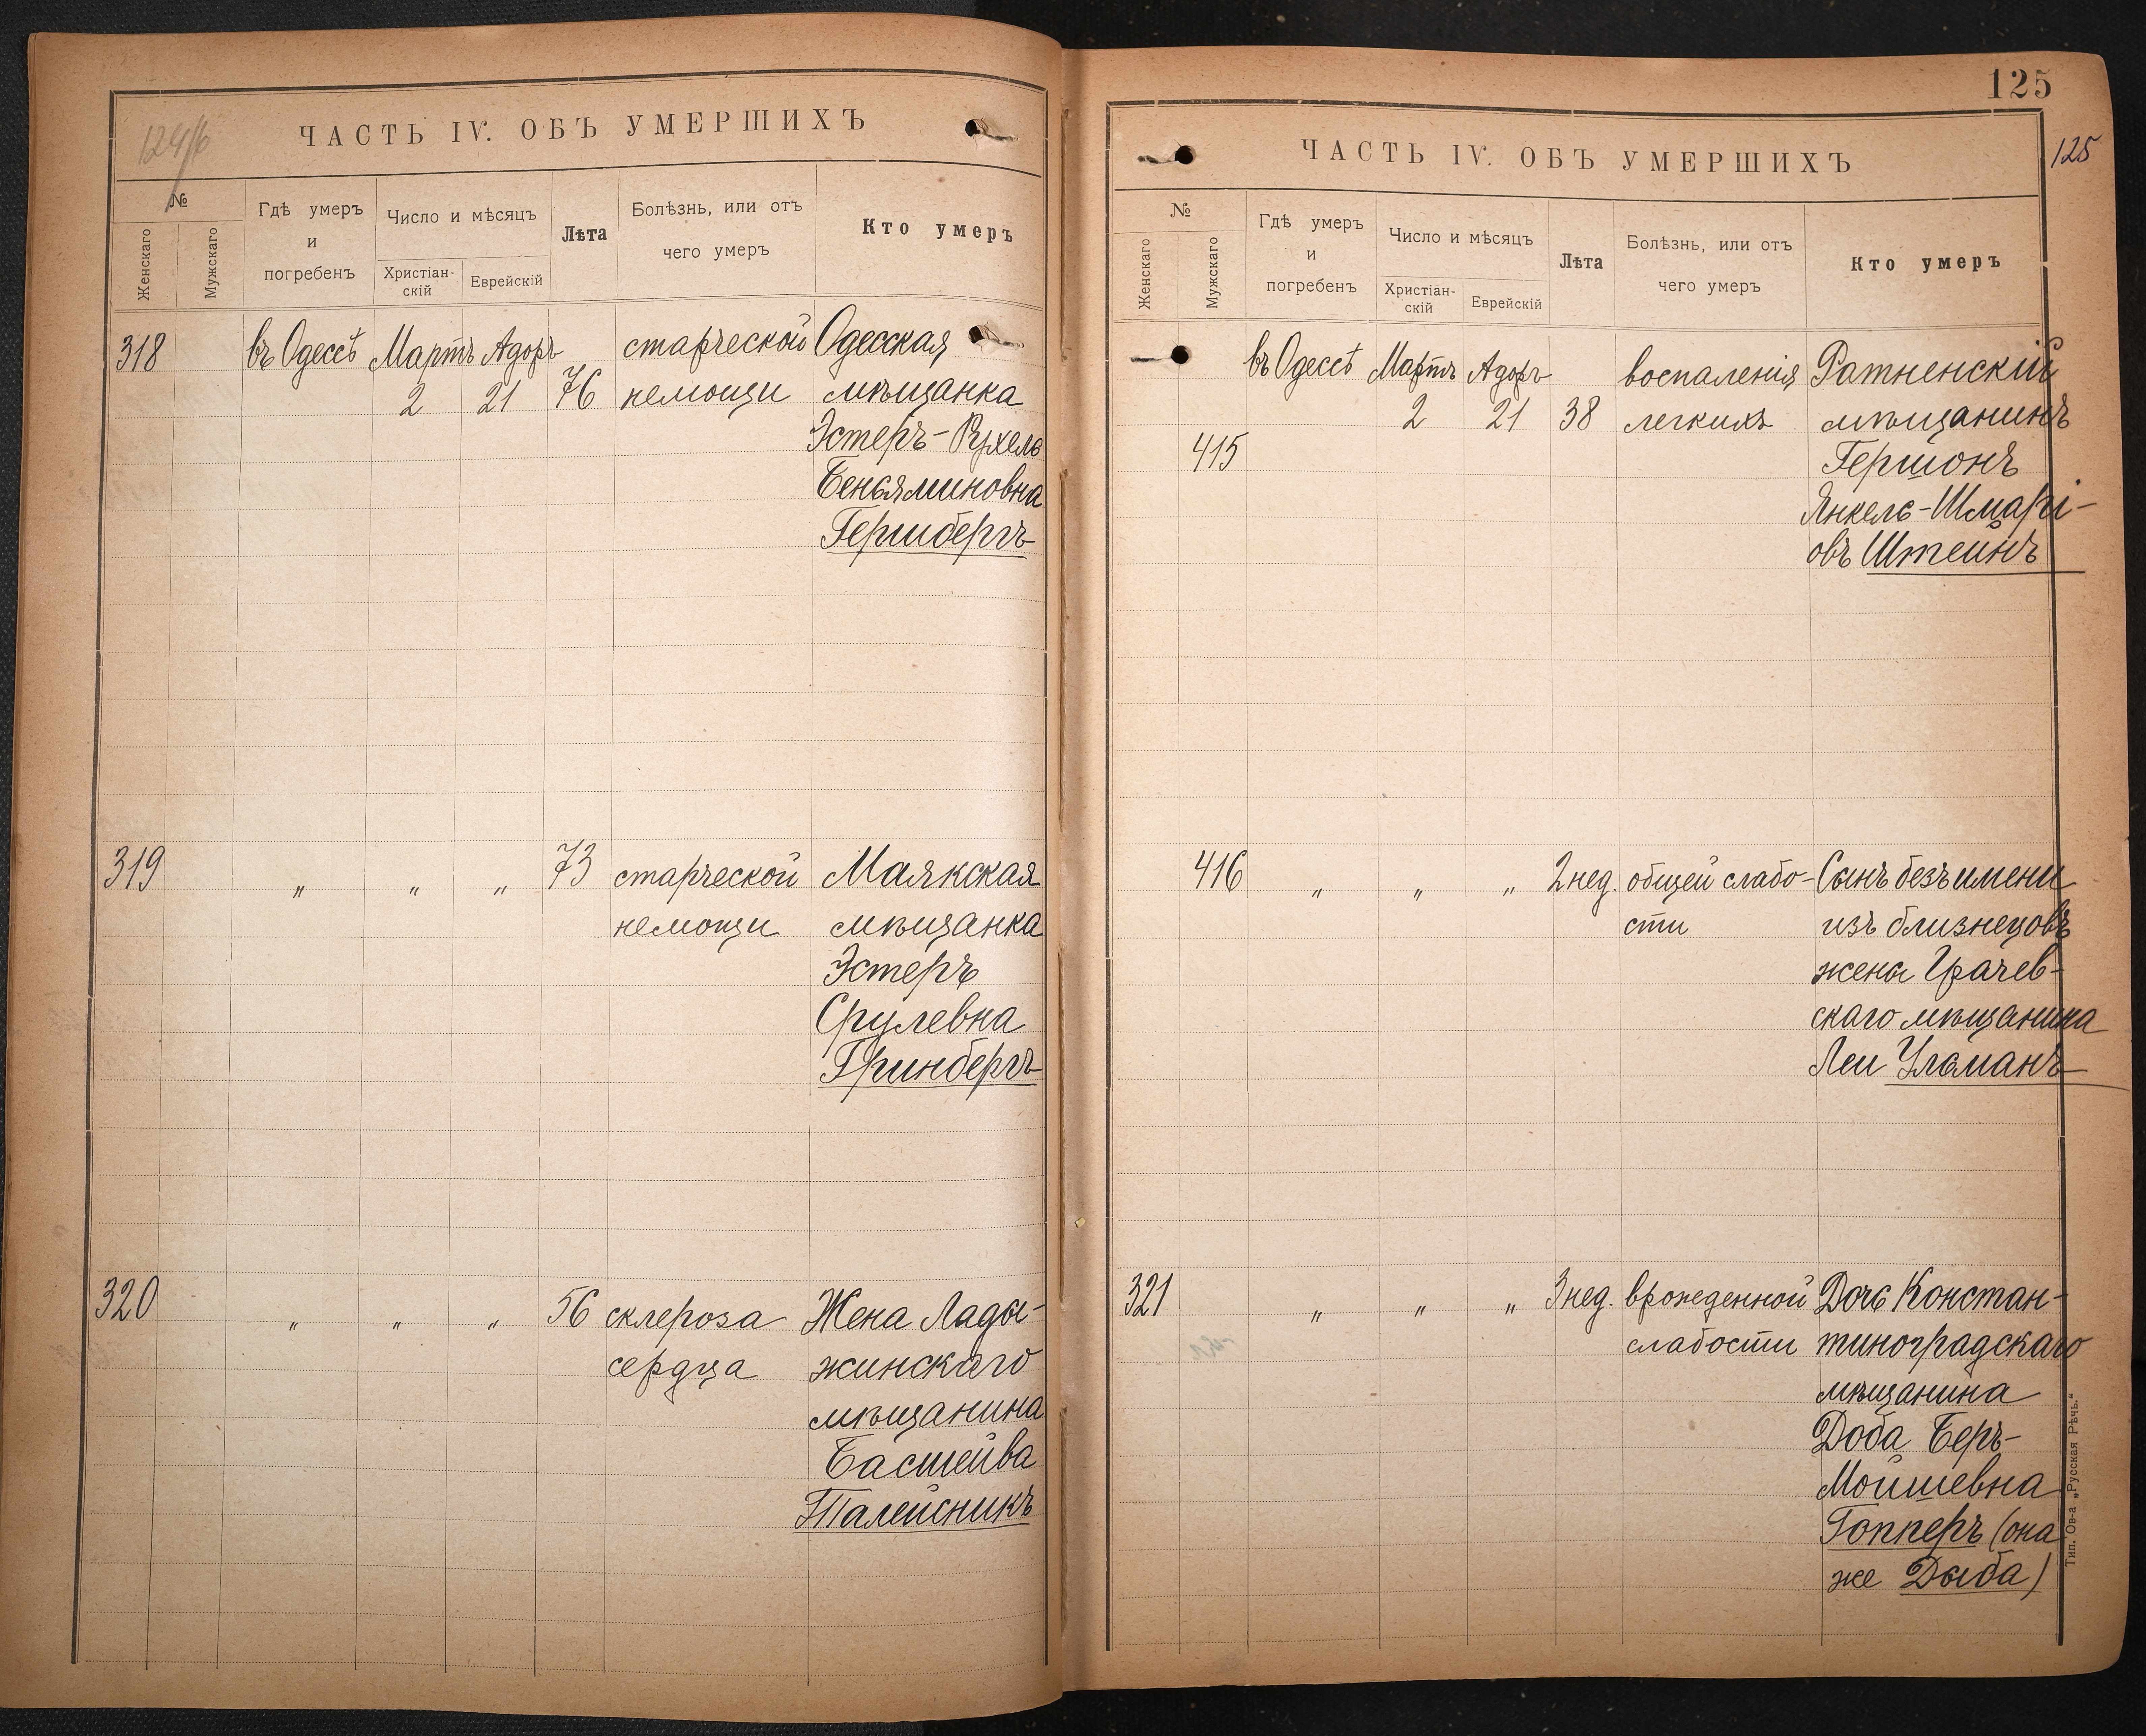 124/б
ЧАСТЬ IV. ОБЪ УМЕРШИХЪ
№
Женскаго
Мужскаго
Гдѣ умеръ
и
погребенъ
Число и мѣсяцъ
Христіан-
скій
Еврейскій
Лѣта
Болѣзнь, или отъ
чего умеръ
Кто умеръ
318 въ Одессѣ Мартъ Адоръ старческой Одесская
2 21 76 немощи мѣщанка
Эстеръ-Рухель
Беньяминовна
Гершбергъ
319 „ „ „ 73 старческой Маякская
немощи мѣщанка
Эстеръ
Срулевна
Гринбергъ
320 „ „ „ 56 склероза Жена Лады-
сердца жинскаго
мѣщанина
Басшейва
Талейсникъ
125
125
ЧАСТЬ IV. ОБЪ УМЕРШИХЪ
№
Женскаго
Мужскаго
Гдѣ умеръ
и
погребенъ
Число и мѣсяцъ
Христіан-
скій
Еврейскій
Лѣта
Болѣзнь, или отъ
чего умеръ
Кто умеръ
въ Одессѣ Мартъ Адоръ воспаленія Ратненскій
2 21 38 легкихъ мѣщанинъ
415 Гершонъ
Янкель-Шмарі-
овъ Штейнъ
416 „ „ „ 2 нед. общей слабо- Сынъ безъ имени
сти изъ близнецовъ
жены Грачев-
скаго мѣщанина
Леи Ульманъ
321 „ „ „ 3 нед. врожденной Дочь Констан-
слабости тиноградскаго
мѣщанина
Доба Беръ-
Мойшевна
Гопперъ (она
же Дыба)
Тип. Ов-а „Русская Рѣчь.“